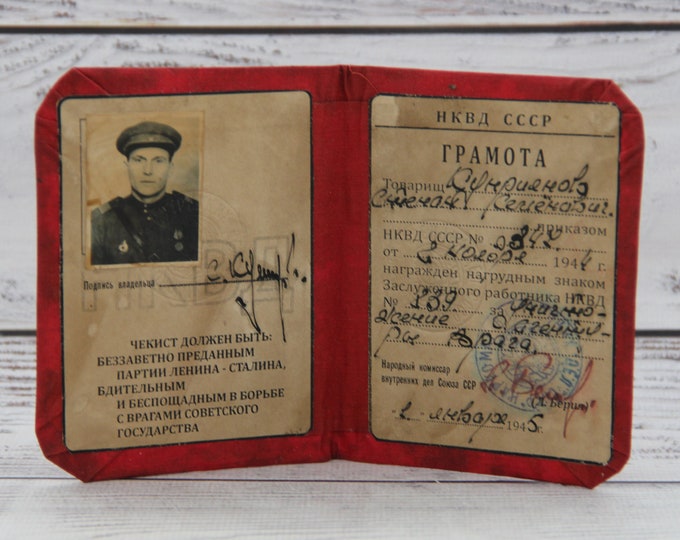 НКВД
Подпись владельца
ЧЕКИСТ ДОЛЖЕН БЫТЬ:
БЕЗЗАВЕТНО ПРЕДАННЫМ
ПАРТИИ ЛЕНИНА - СТАЛИНА,
БДИТЕЛЬНЫМ
И БЕСПОЩАДНЫМ В БОРЬБЕ
С ВРАГАМИ СОВЕТСКОГО
ГОСУДАРСТВА
НКВД СССР
ГРАМОТА
Товарищ Куприянов
Степан Семёнович.
приказом
НКВД СССР №
от 2 ноября 1944 г.
награжден нагрудным знаком
Заслуженного работника НКВД
№ 359 за уничто-
жение агенту-
ры врага.
Народный комиссар
внутренних дел Союза ССР
(Л. Берия)
2 января 1945г.